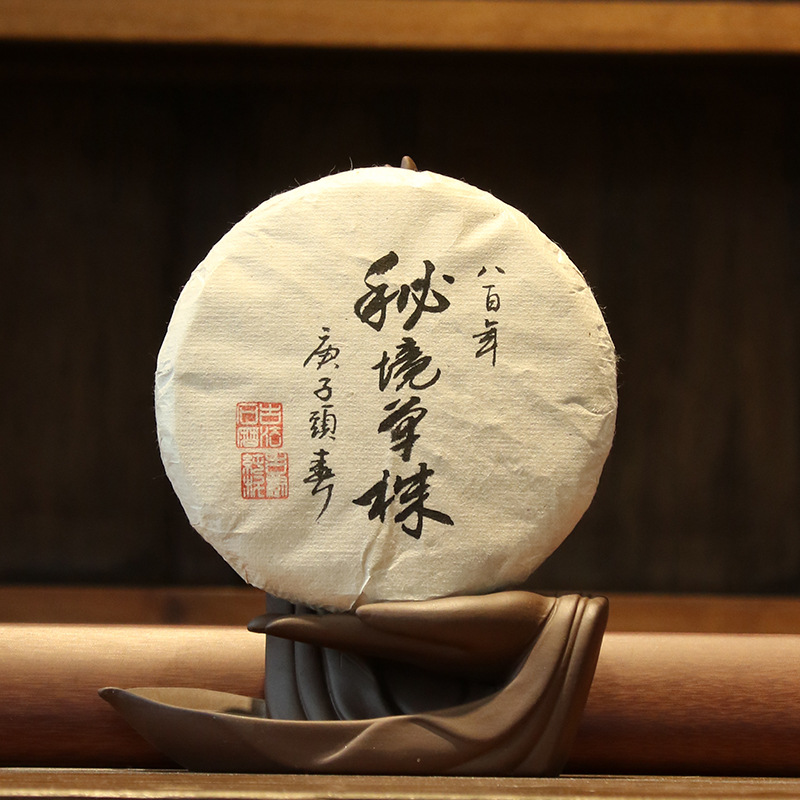 八百年
秘境单株
庚子頭春